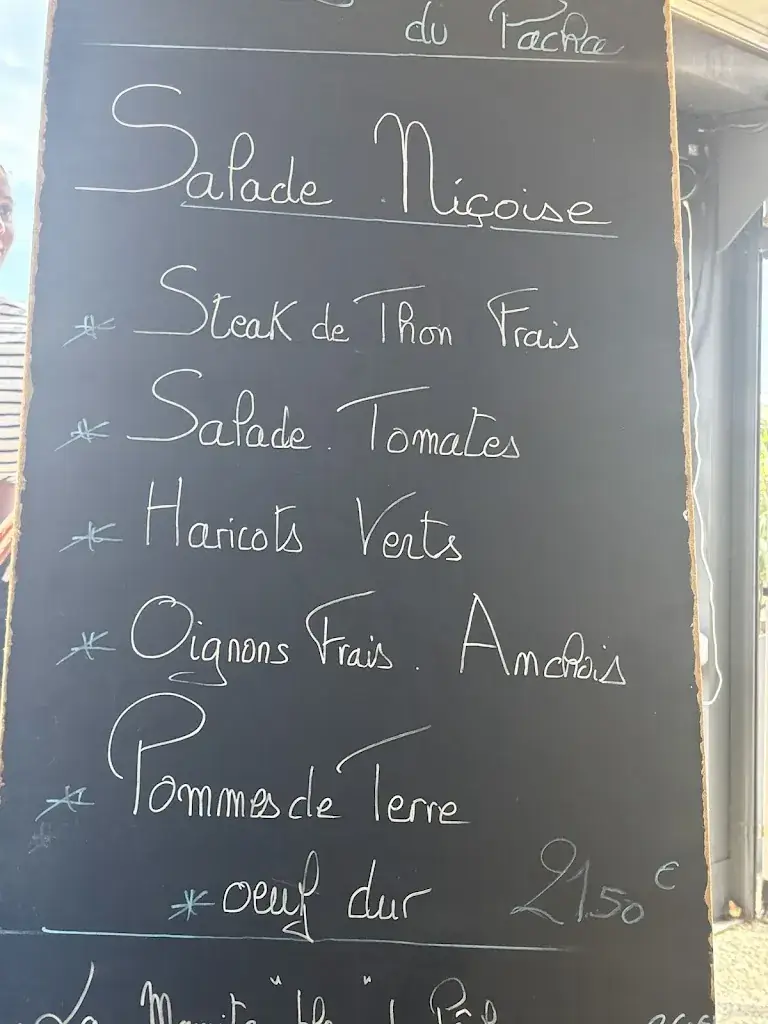 du Pacha
Salade Niçoise
* Steak de Thon Frais
* Salade. Tomates
* Haricots Verts
* Oignons Frais. Anchois
* Pommes de Terre
* oeuf dur 21,50 €
La